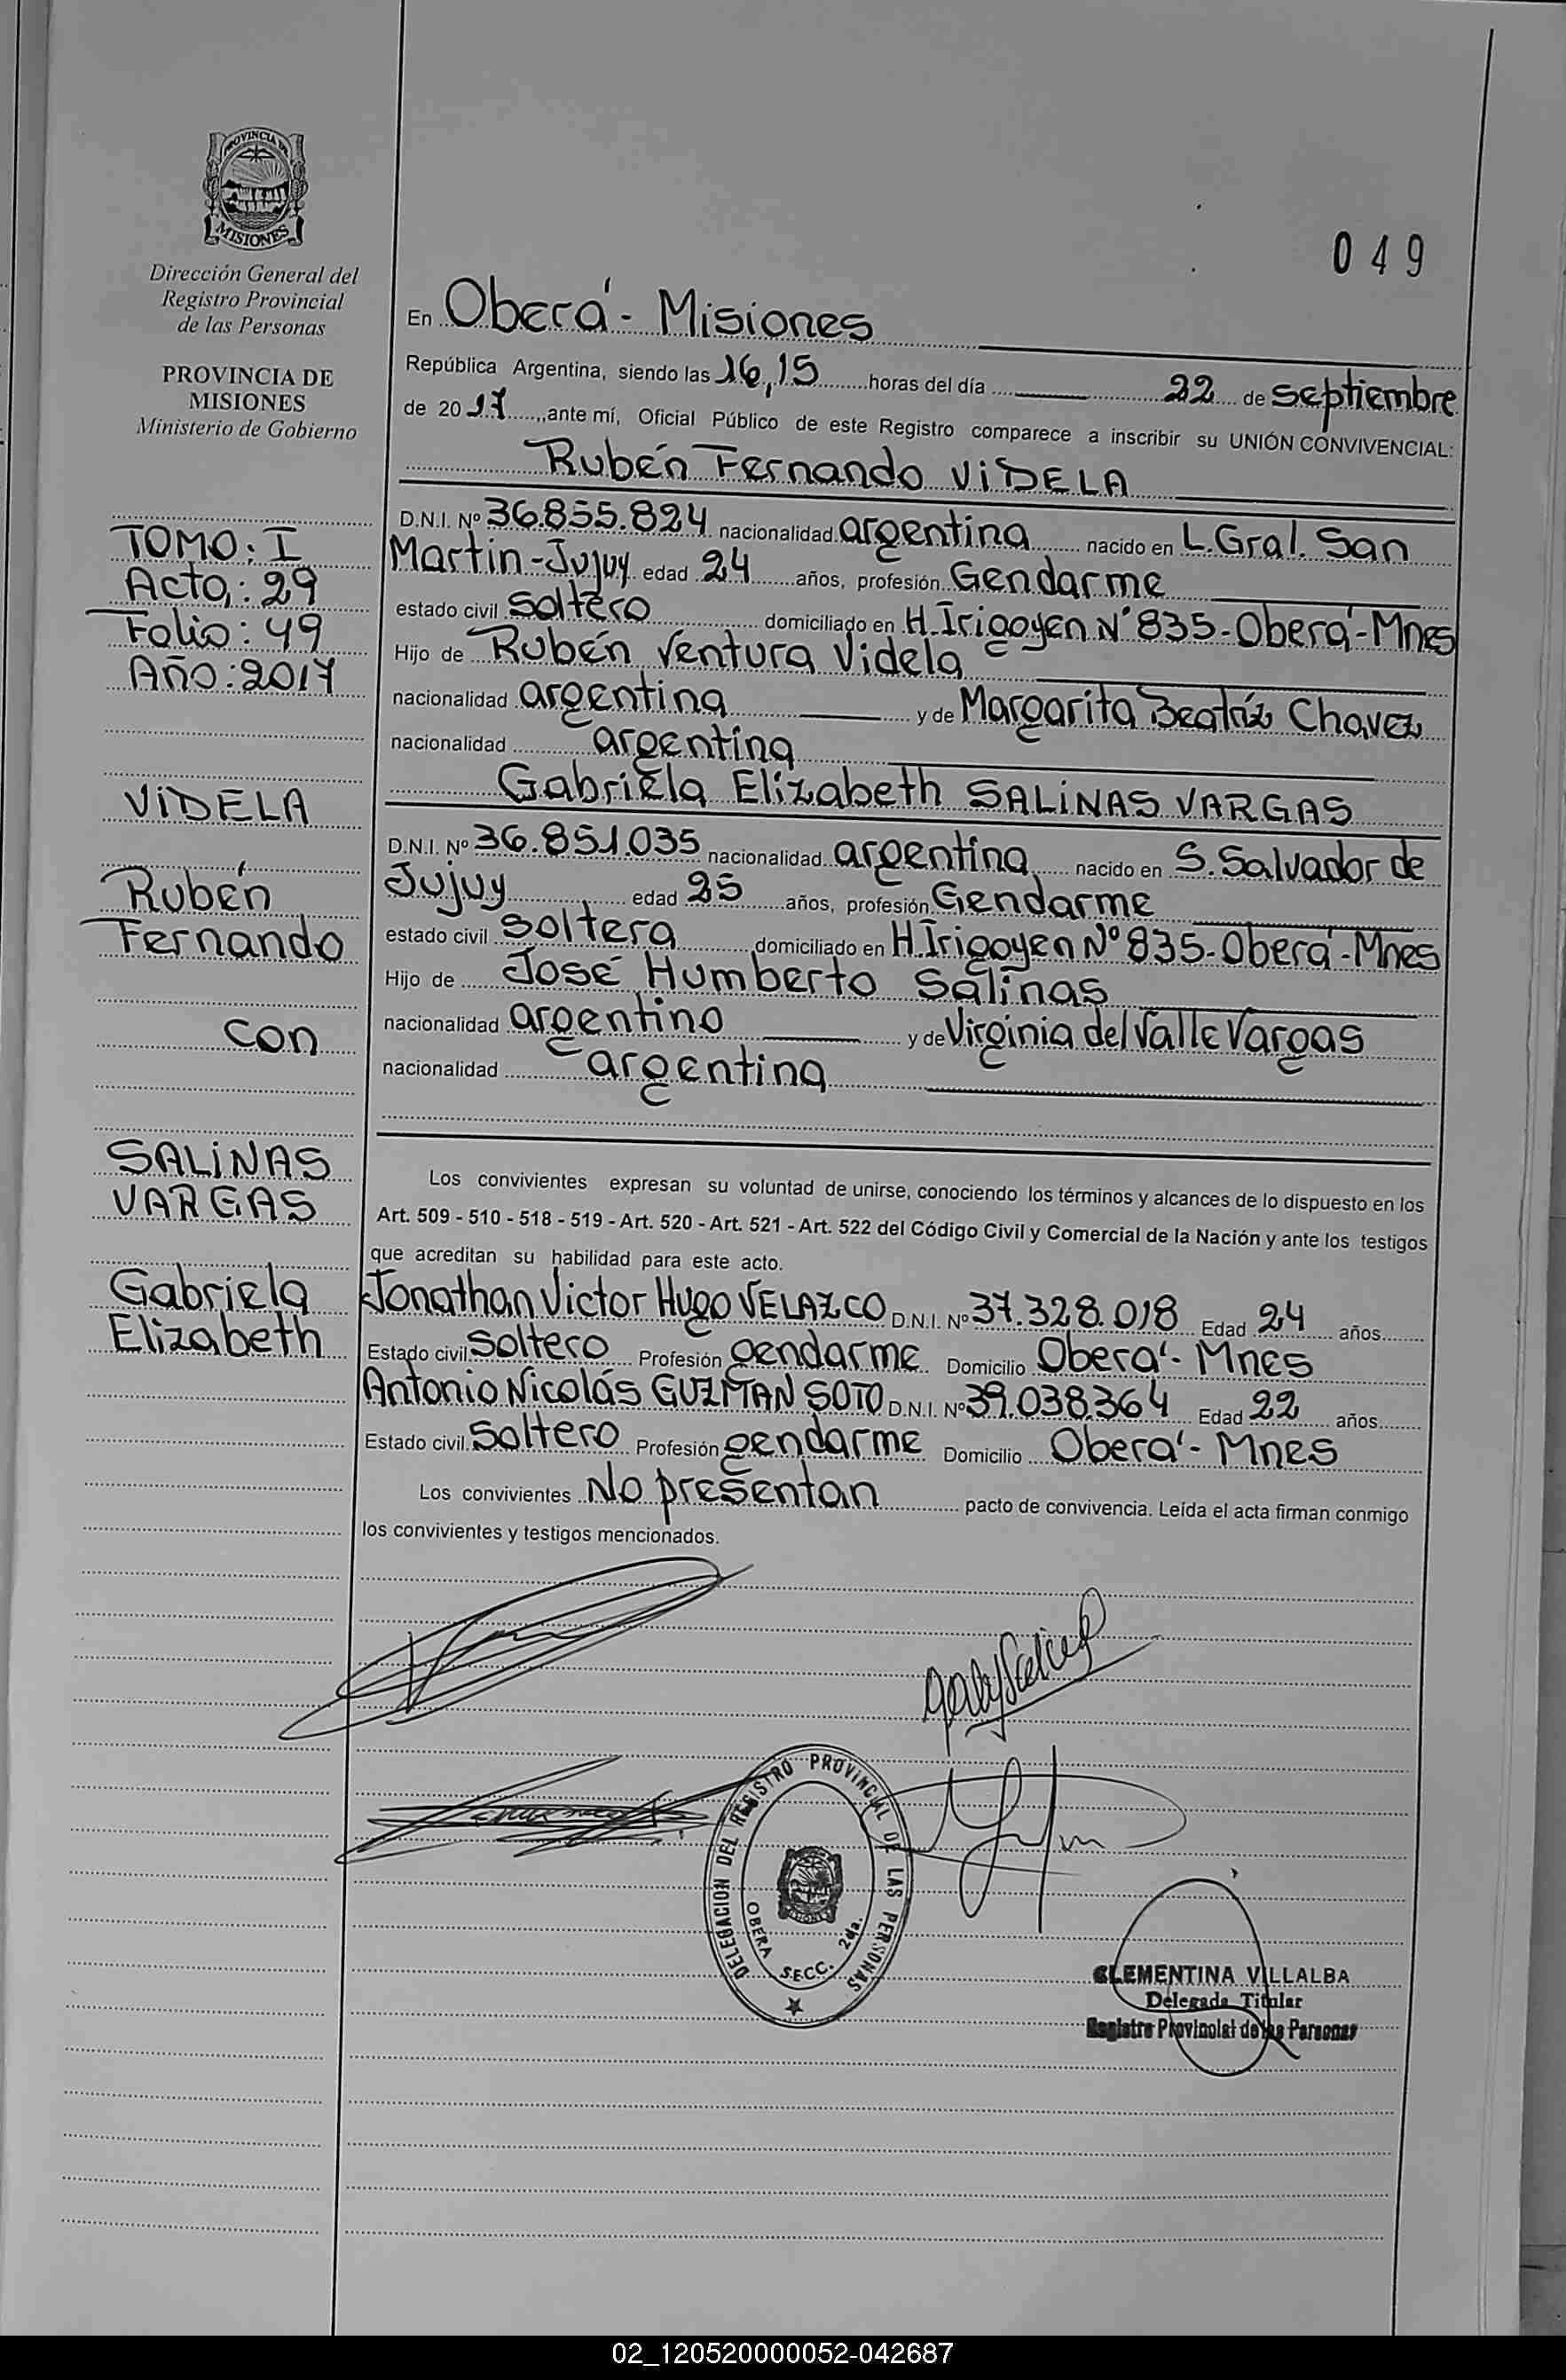 PROVINCIA DE
MISIONES
Dirección General del
Registro Provincial
de las Personas
PROVINCIA DE
MISIONES
Ministerio de Gobierno
TOMO: I
Acta: 29
Folio: 49
Año: 2017
ViDELA
Rubén
Fernando
Con
SALiNAS
VARGAS
Gabriela
Elizabeth
049
En Oberá - Misiones
República Argentina, siendo las 16,15 horas del día 22 de septiembre
de 2017, ante mí, Oficial Público de este Registro comparece a inscribir su UNIÓN CONVIVENCIAL:
Rubén Fernando ViDELA
D.N.I. Nº 36.855.824 nacionalidad argentina nacido en L. Gral. San
Martin-Jujuy edad 24 años, profesión Gendarme
estado civil Soltero domiciliado en H. Irigoyen N° 835-Oberá-Mnes
Hijo de Rubén Ventura Videla
nacionalidad argentina y de Margarita Beatríz Chavez
nacionalidad argentina
Gabriela Elizabeth SALiNAS VARGAS
D.N.I. Nº 36.851.035 nacionalidad argentina nacido en S. Salvador de
Jujuy edad 25 años, profesión Gendarme
estado civil Soltera domiciliado en H. Irigoyen Nº 835-Oberá-Mnes
Hijo de José Humberto Salinas
nacionalidad argentino y de Virginia del Valle Vargas
nacionalidad argentina
Los convivientes expresan su voluntad de unirse, conociendo los términos y alcances de lo dispuesto en los
Art. 509 - 510 - 518 - 519 - Art. 520 - Art. 521 - Art. 522 del Código Civil y Comercial de la Nación y ante los testigos
que acreditan su habilidad para este acto.
Jonathan Victor Hugo VELAZCO D.N.I. Nº 37.328.018 Edad 24 años
Estado civil Soltero Profesión gendarme Domicilio Oberá - Mnes
Antonio Nicolás GUZMAN SOTO D.N.I. Nº 39.038.364 Edad 22 años
Estado civil Soltero Profesión gendarme Domicilio Oberá - Mnes
Los convivientes No presentan pacto de convivencia. Leída el acta firman conmigo
los convivientes y testigos mencionados.
DELEGACION DEL REGISTRO PROVINCIAL DE LAS PERSONAS
OBERA SECC. 2da.
CLEMENTINA VILLALBA
Delegada Titular
Registro Provincial de las Personas
02_120520000052-042687